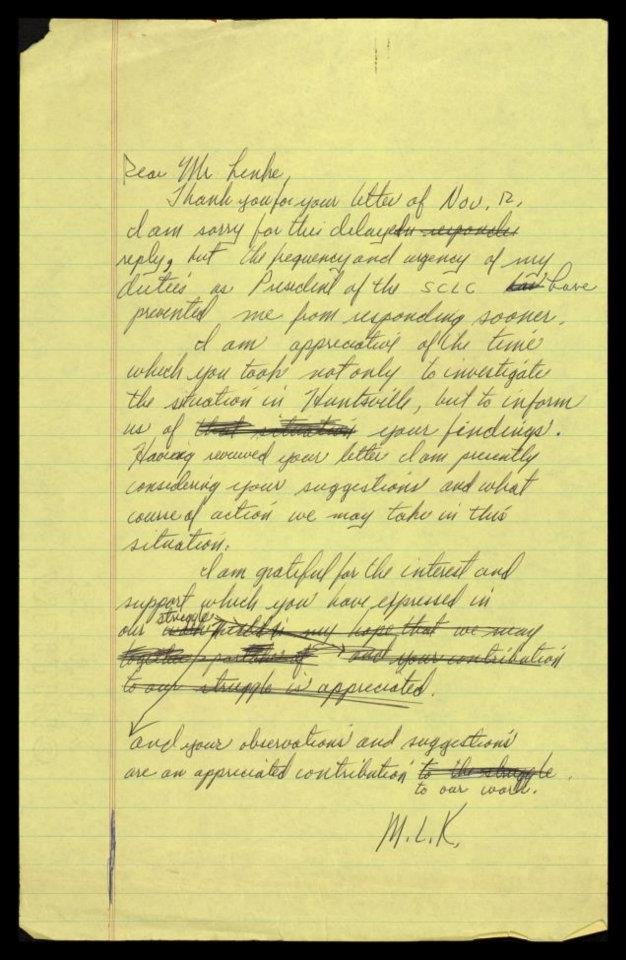 Dear Mr. Lenke,
Thank you for your letter of Nov. 12.
I am sorry for this delayed in responder
reply, but the frequency and urgency of my
duties as President of the SCLC has have
prevented me from responding sooner.
I am appreciative of the time
which you took not only to investigate
the situation in Huntsville, but to inform
us of that situation your findings.
Having received your letter I am presently
considering your suggestions and what
course of action we may take in this
situation.
I am grateful for the interest and
support which you have expressed in
struggle
our my hope that we may
together of and your contribution
to our struggle is appreciated.
and your observations and suggestions
are an appreciated contribution to the struggle.
to our work.
M.L.K.